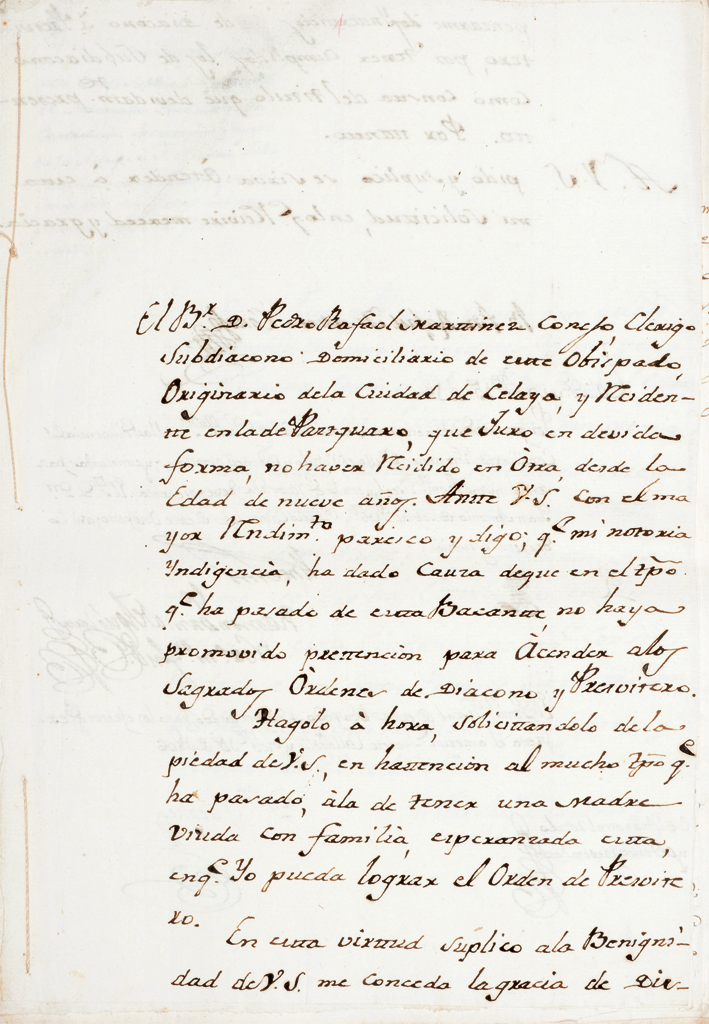 El B.r D. Pedro Rafael Martinez Conejo, Clerigo
Subdiacono Domiciliario de este Obispado,
Originario dela Ciudad de Celaya, y Residen-
te enlade Patzquaro, que Juro en devida
forma, no haver Recidido en Òtra, desde la
Edad de nueve años. Ante V.S. con el ma
yor Rndim.to paresco y digo; q.e mi notoria
Yndigencia, ha dado Cauza deque en el tpõ.
q.e ha pasado de esta Bacante, no haya
promovido prettencion para Àcender alos
Sagrados Òrdenes de Diacono y Presvitero.
Hagolo à hora, solicitandolo de la
piedad de V.S., en hattencion al mucho tpõ q.e
ha pasado, àla de tener una Madre
viuda con familia, esperanzada esta,
enq.e Yo pueda lograr el Orden de Presvite
ro.
En esta virtud suplico ala Benigni-
dad de V.S. me conceda la gracia de Dis-